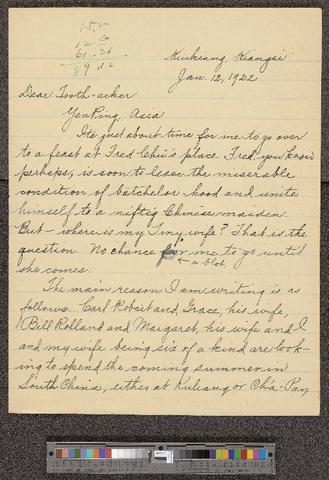 15.
12.
61.36
89.26
Kiukiang, Kiangsi
Jan. 12, 1922
Dear Tooth-acher
YenPing, Asia
Its just about time for me to go over
to a feast at Fred Chiu's place Fred, you know
perhaps, is soon to leave the miserable
condition of batchelor-hood and unite
himself to a niftig Chinese maiden.
But - where is my Tiny wife? That is the
question. No chance for me to go until
she comes.
a blot.
The main reason I am writing is as
follows. Carl Robart and Grace, his wife,
Bill Rolland and Margaret, his wife and I
and my wife being six of a kind are look-
ing to spend the coming summer in
South China, either at Kuliang or Cha-Pan